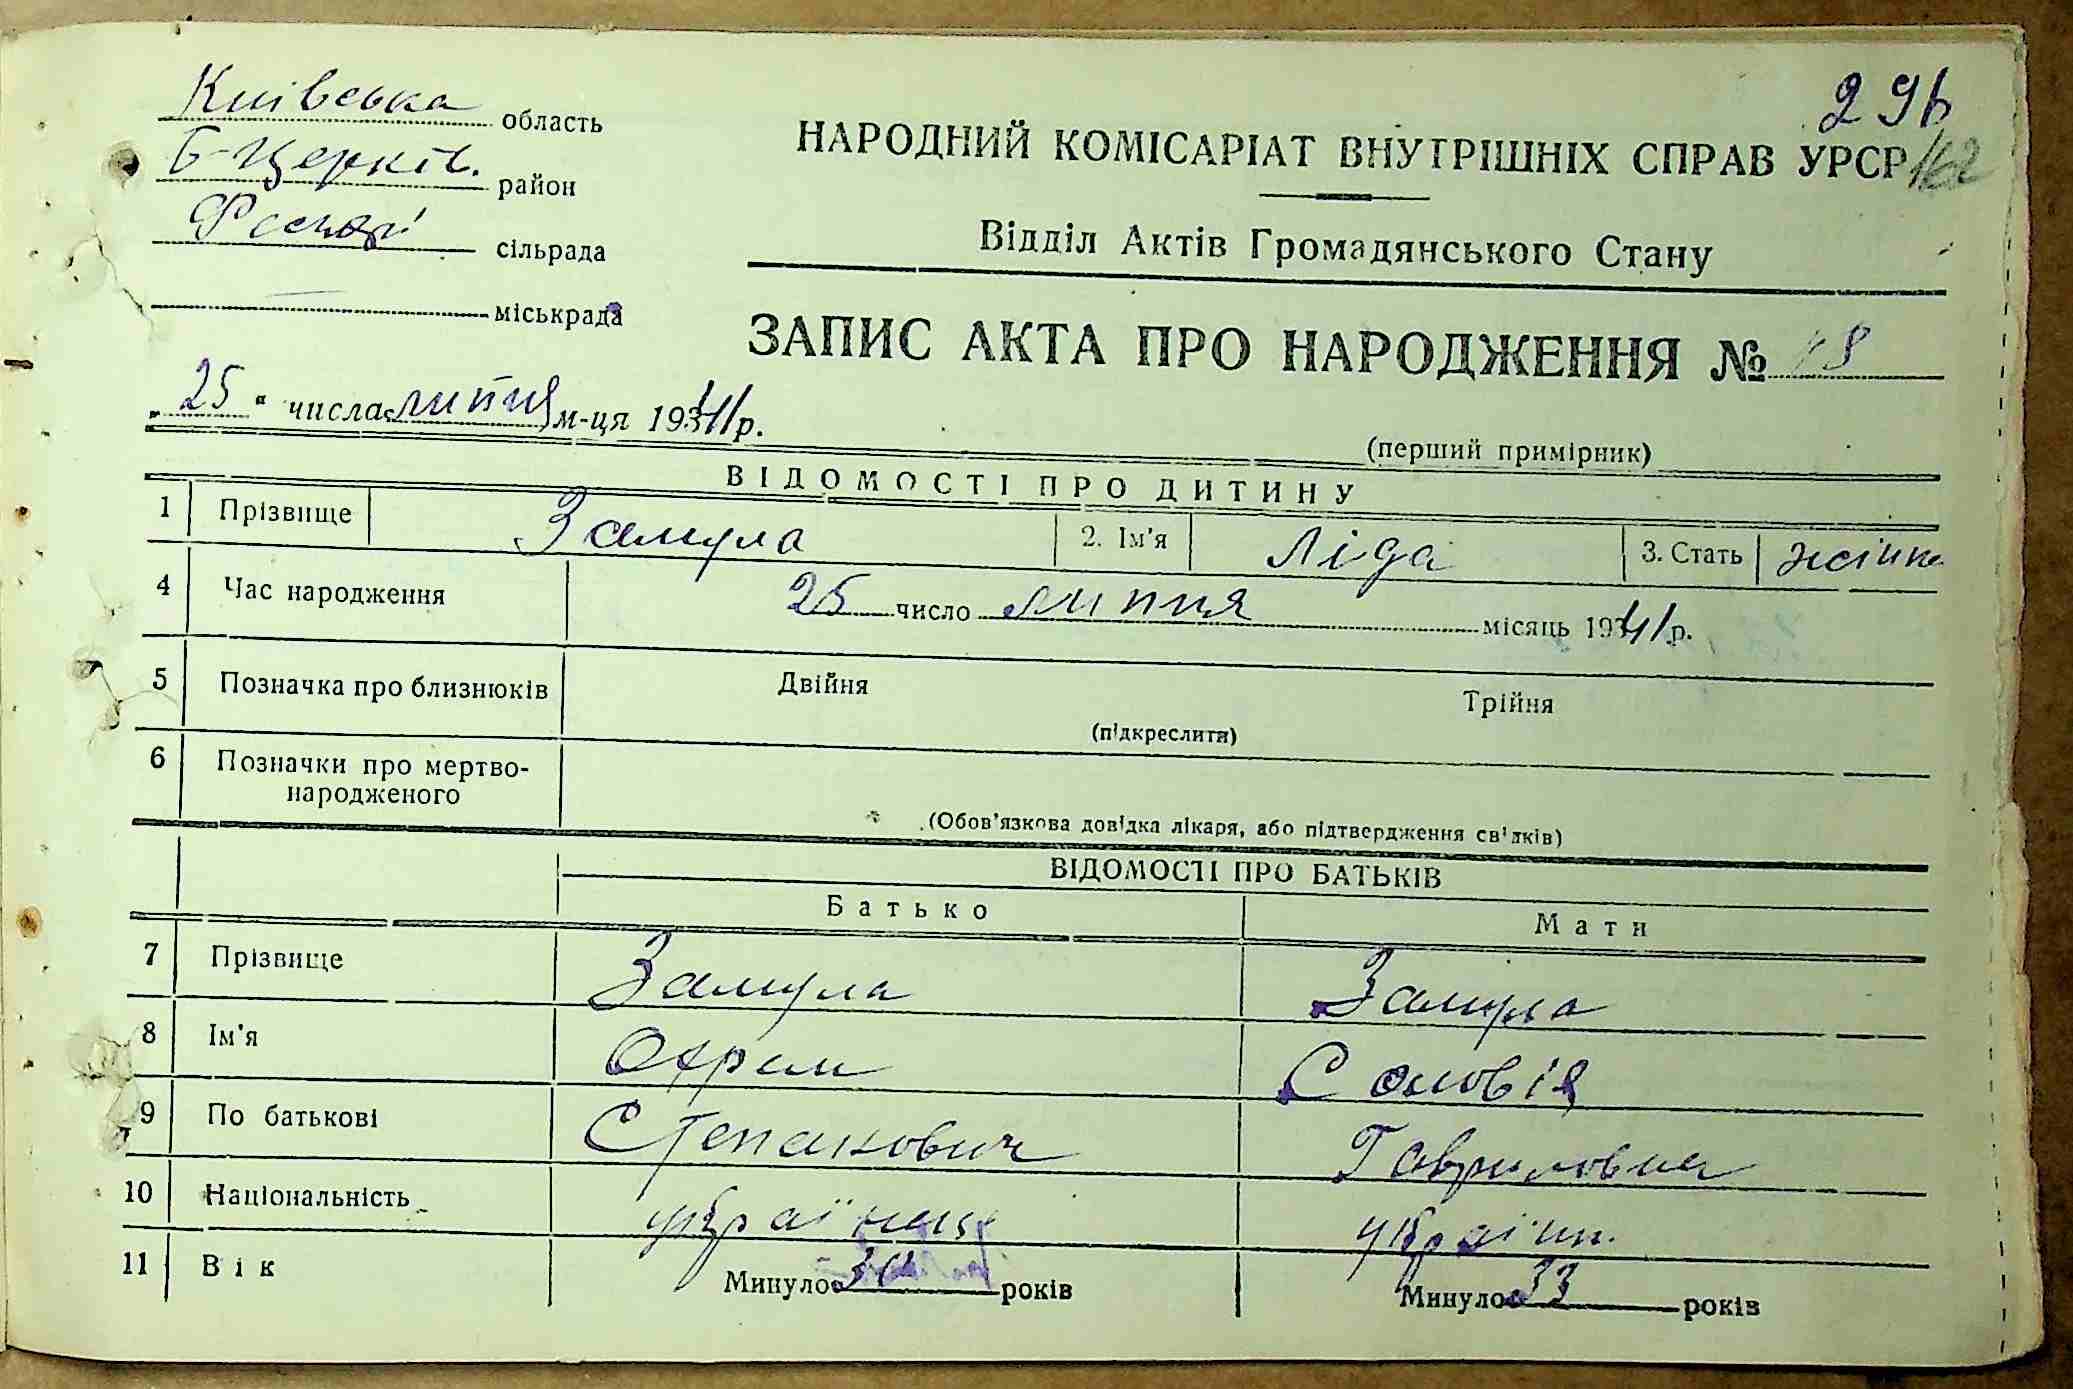 296
Київська область
Б-Церків. район
сільрада
міськрада
НАРОДНИЙ КОМІСАРІАТ ВНУТРІШНІХ СПРАВ УРСР
162
Відділ Актів Громадянського Стану
ЗАПИС АКТА ПРО НАРОДЖЕННЯ № 18
„25“ числа липня м-ця 1941 р.
(перший примірник)
ВІДОМОСТІ ПРО ДИТИНУ
1 Прізвище Замула 2. Ім'я Ліда 3. Стать жінка
4 Час народження 25 число липня місяць 1941 р.
5 Позначка про близнюків Двійня Трійня
(підкреслити)
6 Позначки про мертво-
народженого
(Обов'язкова довідка лікаря, або підтвердження свідків)
ВІДОМОСТІ ПРО БАТЬКІВ
Батько Мати
7 Прізвище Замула Замула
8 Ім'я Охрем Соловія
9 По батькові Степанович Гавриловна
10 Національність українець україн.
11 Вік Минуло років Минуло 33 років